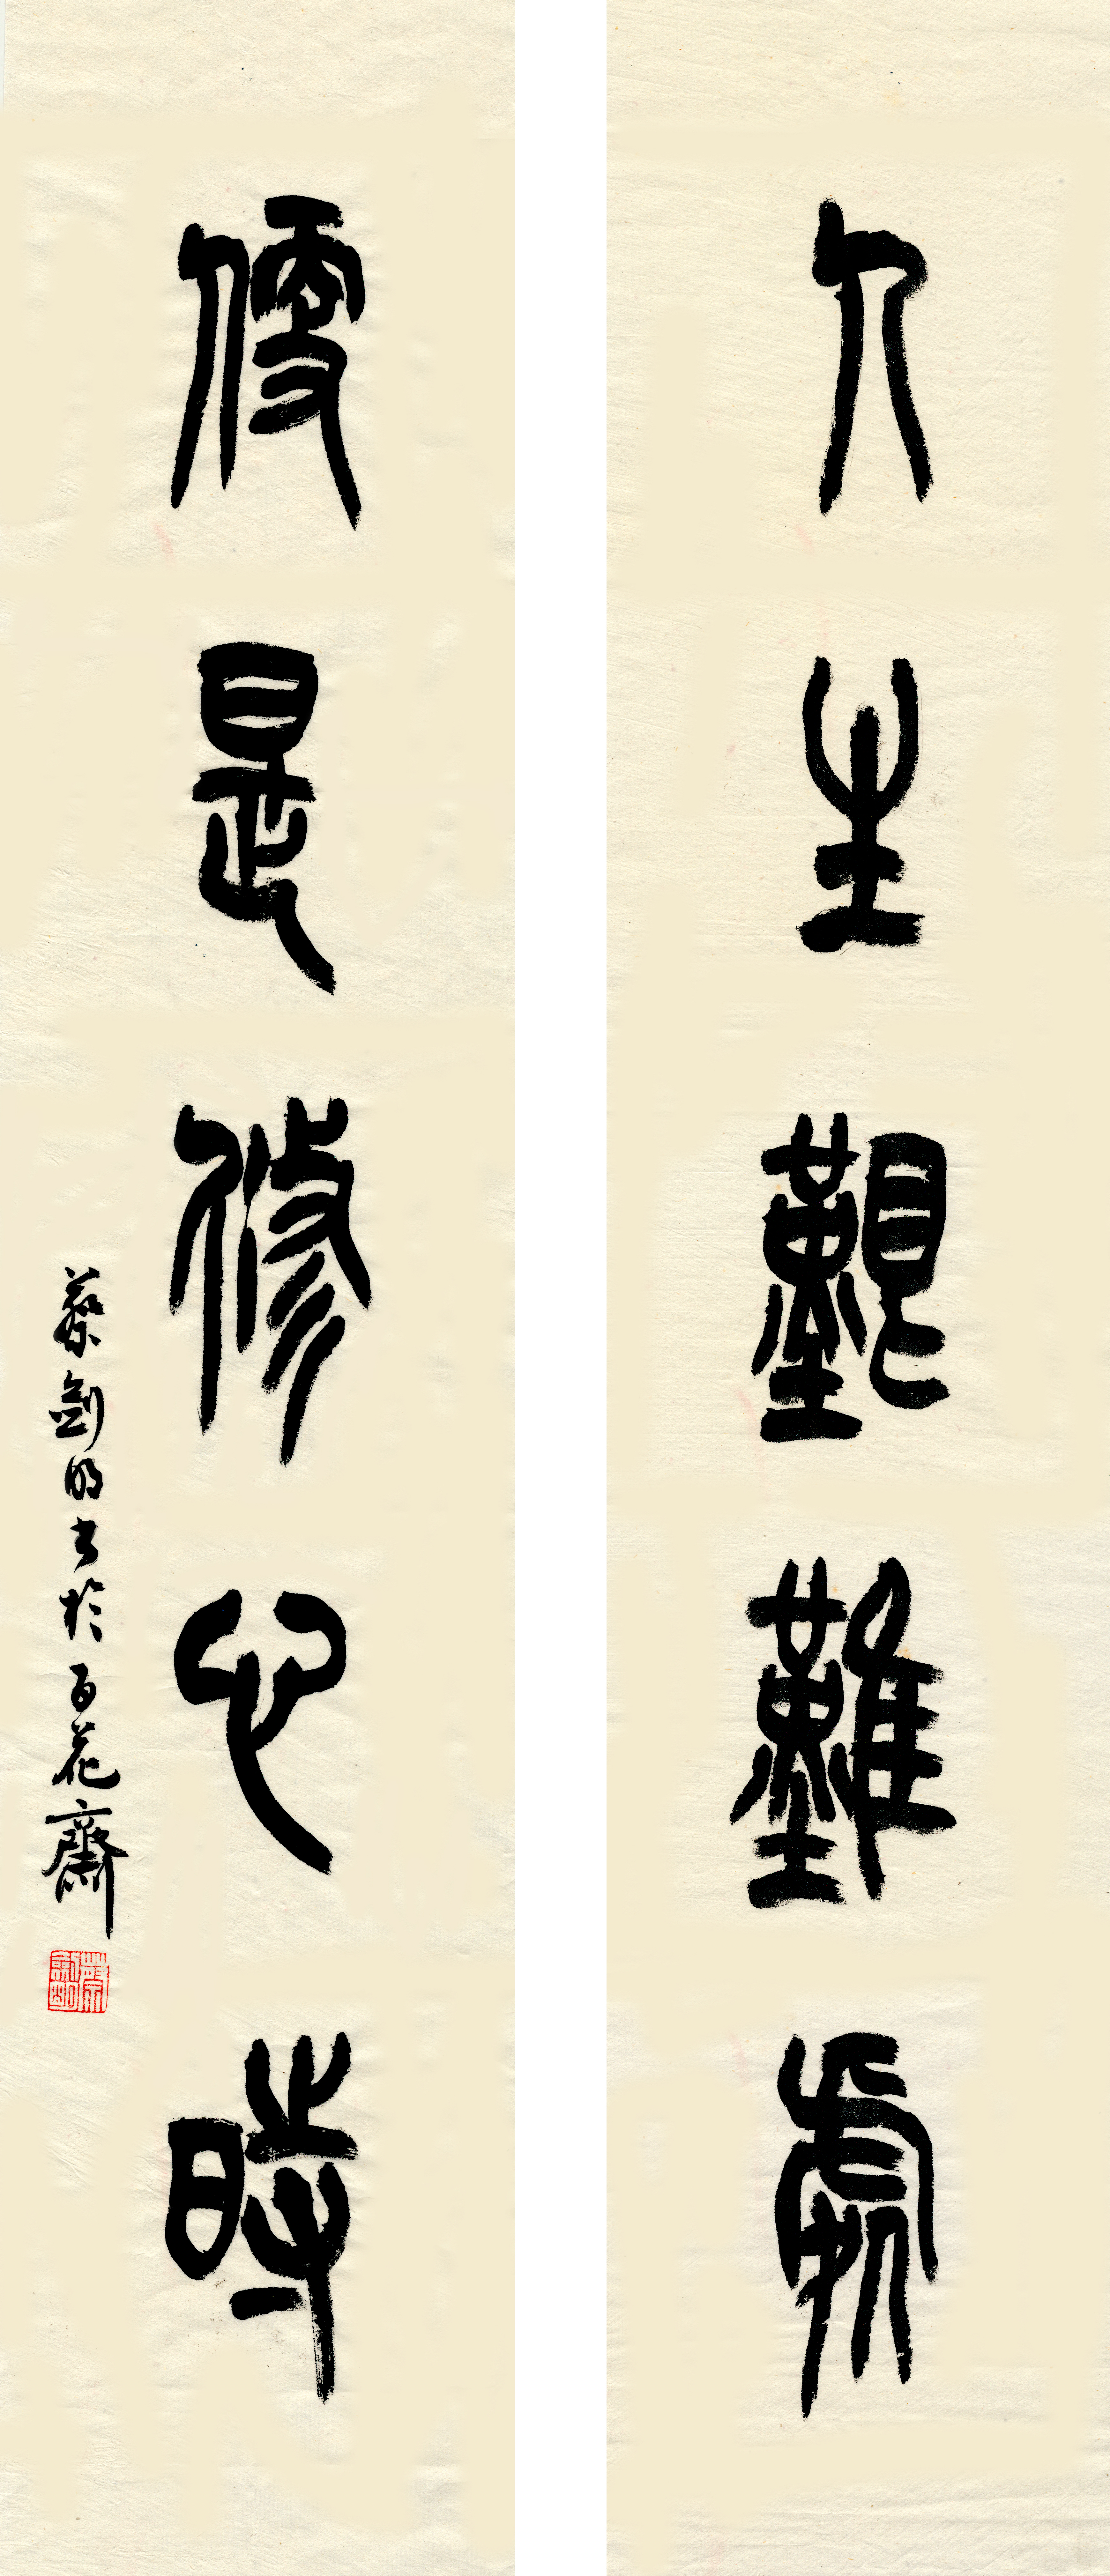 人生艱難處
便是修心時
蔡劍明書於百花齋
蔡劍明